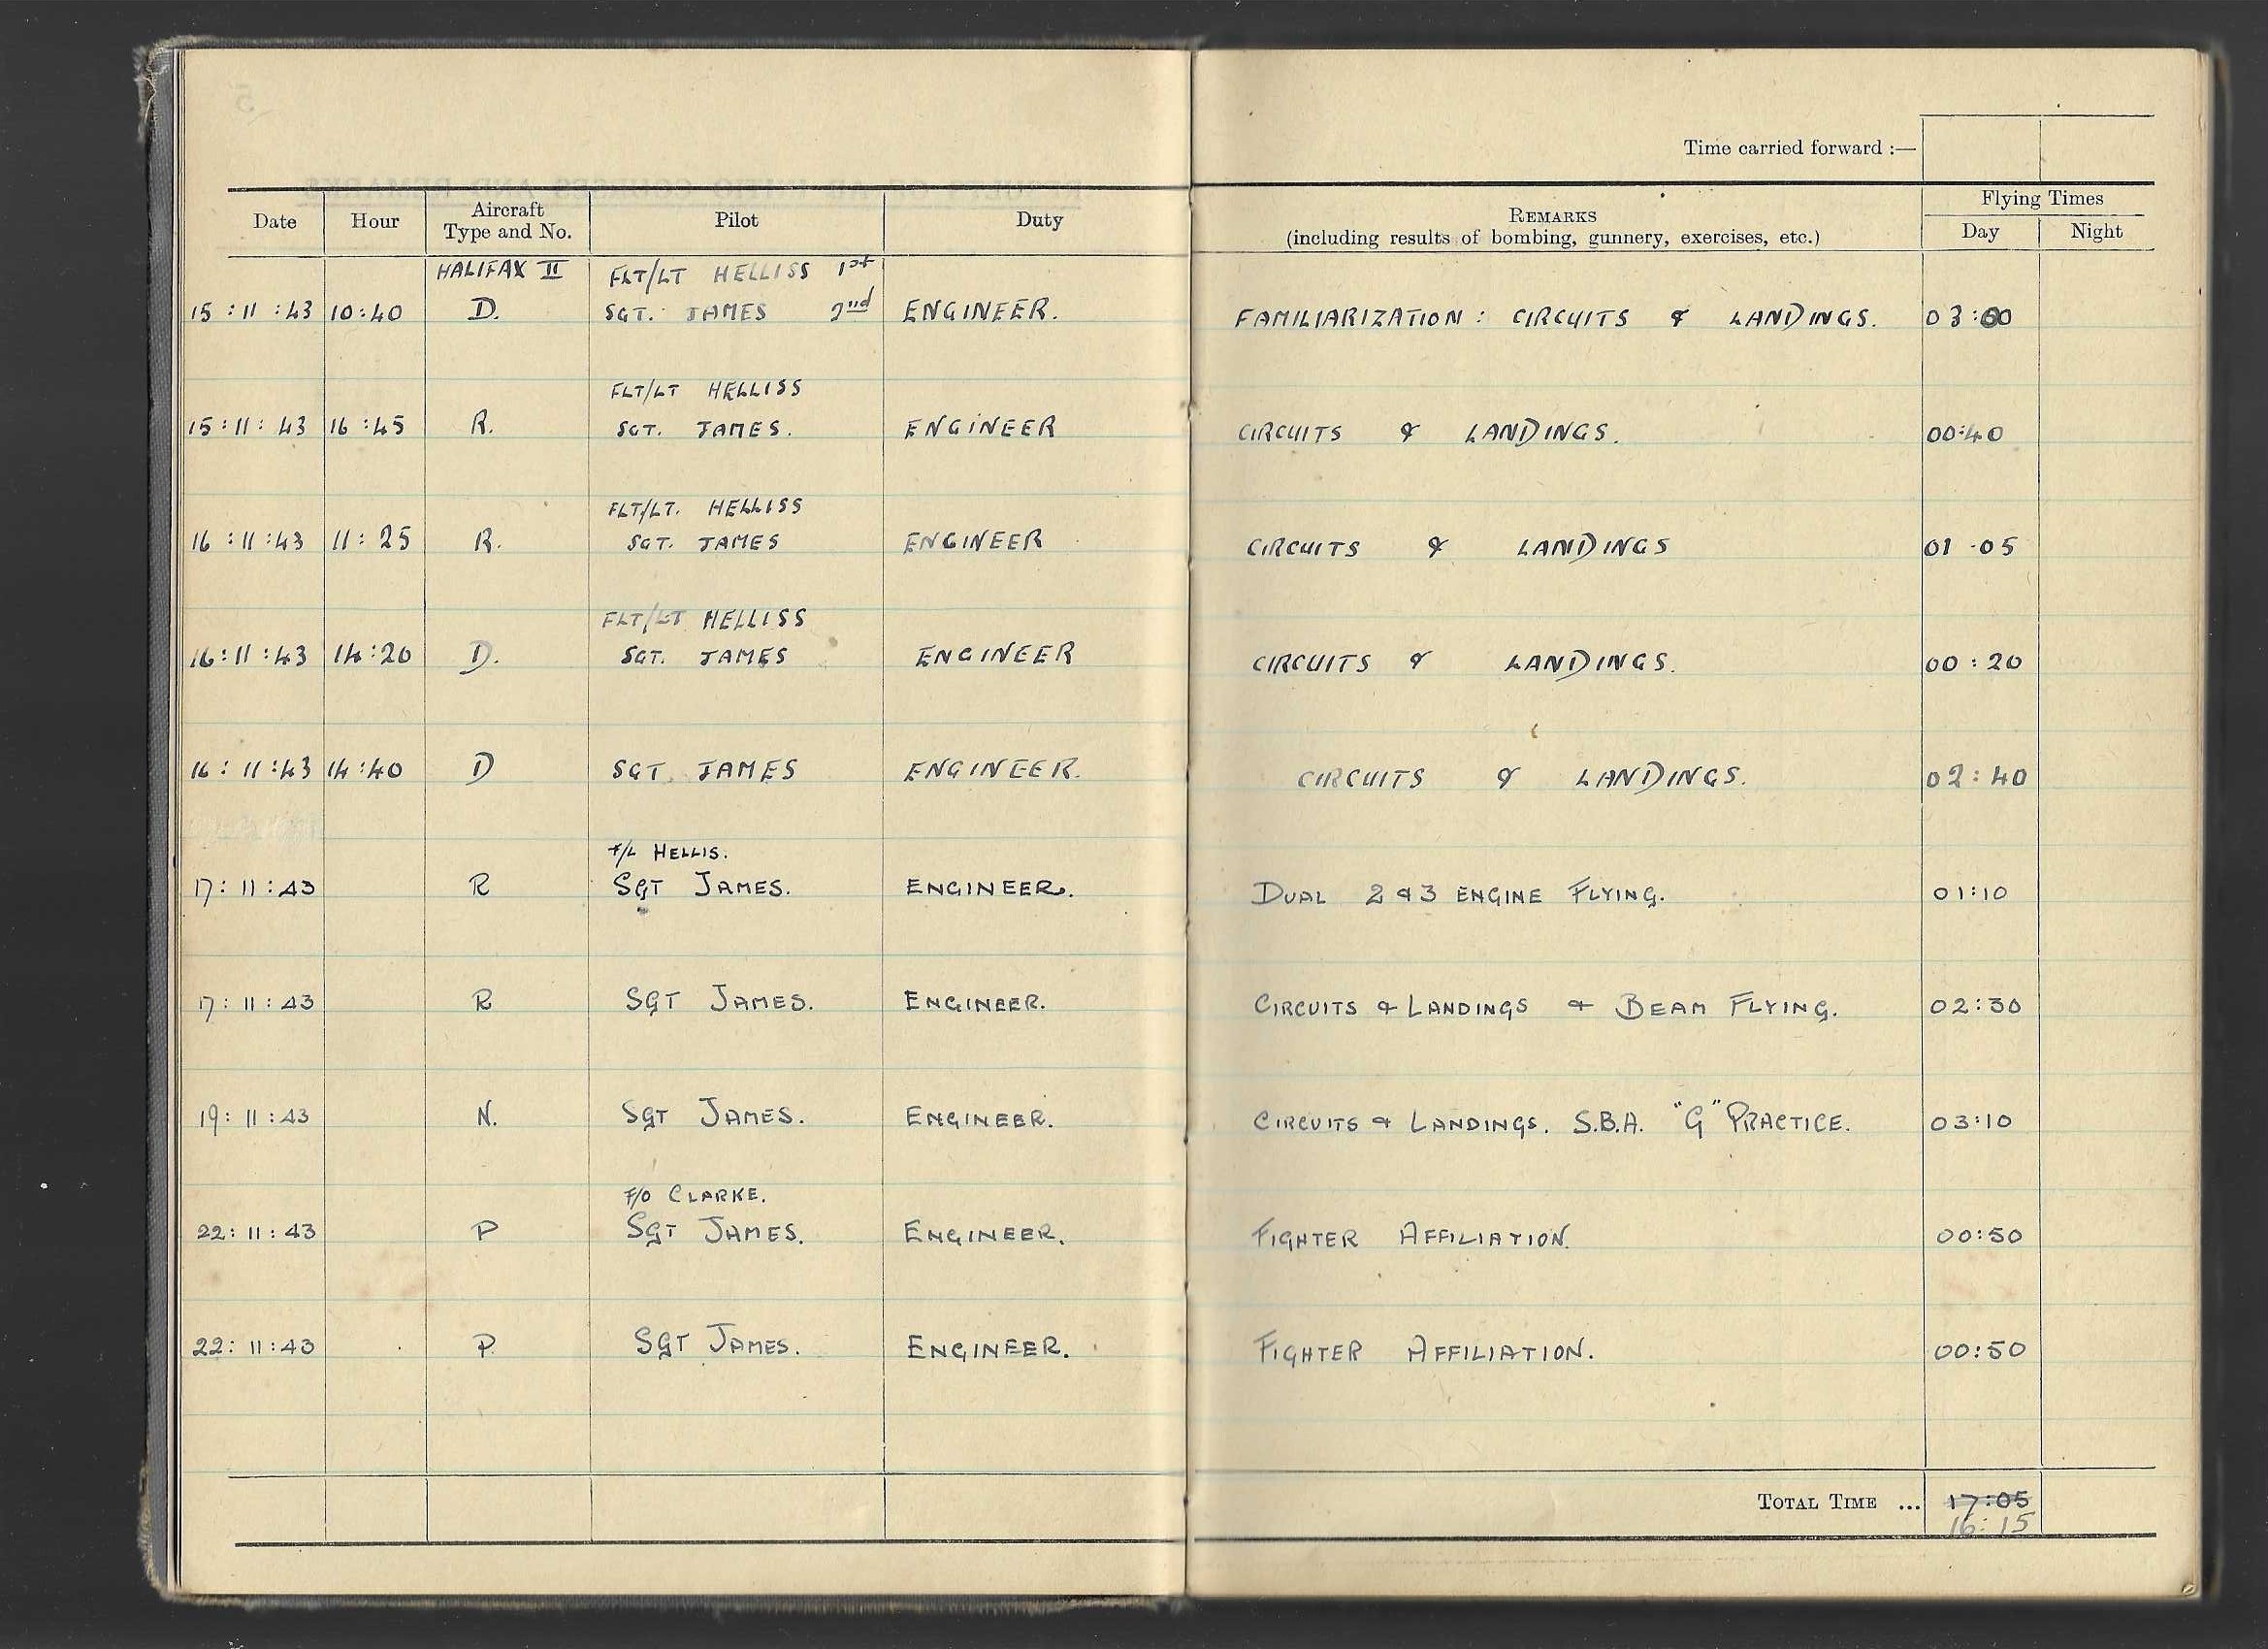 Time carried forward :—
Date Hour Aircraft Type and No. Pilot Duty REMARKS (including results of bombing, gunnery, exercises, etc.) Flying Times Day Night
HALIFAX II FLT/LT HELLISS 1st
15:11:43 10:40 D. SGT. JAMES 2nd ENGINEER. FAMILIARIZATION: CIRCUITS & LANDINGS. 03:00
FLT/LT HELLISS
15:11:43 16:45 R. SGT. JAMES. ENGINEER CIRCUITS & LANDINGS. 00:40
FLT/LT. HELLISS
16:11:43 11:25 R. SGT. JAMES ENGINEER CIRCUITS & LANDINGS 01.05
FLT/LT HELLISS
16:11:43 14:20 D. SGT. JAMES ENGINEER CIRCUITS & LANDINGS. 00:20
16:11:43 14:40 D SGT. JAMES ENGINEER. CIRCUITS & LANDINGS. 02:40
F/L HELLIS.
17:11:43 R SGT JAMES. ENGINEER. DUAL 2 & 3 ENGINE FLYING. 01:10
17:11:43 R SGT JAMES. ENGINEER. CIRCUITS & LANDINGS & BEAM FLYING. 02:30
19:11:43 N. SGT JAMES. ENGINEER. CIRCUITS & LANDINGS. S.B.A. "G" PRACTICE. 03:10
F/O CLARKE.
22:11:43 P SGT JAMES. ENGINEER. FIGHTER AFFILIATION. 00:50
22:11:43 P. SGT JAMES. ENGINEER. FIGHTER AFFILIATION. 00:50
TOTAL TIME ... 17:05
16:15